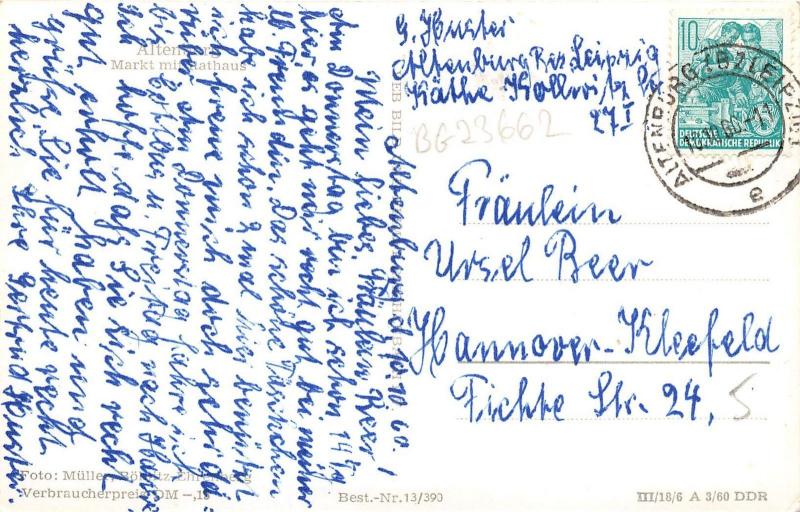 G. Huster
Altenburg Bez. Leipzig
Käthe Kollwitz Str.
27 I
BG23662
10
DEUTSCHE
DEMOKRATISCHE REPUBLIK
ALTENBURG (BZ LEIPZIG) 1
a
Fräulein
Ursel Beer
Hannover-Kleefeld
Fichte Str. 24,
5
Altenburg, d. 10.10.60.
Mein liebes Fräulein Beer!
Am Donnerstag bin ich schon 14 Tg
hier es geht mir recht gut bei meiner
Freundin. Das schöne Täschchen
habe ich schon 2 mal hier benützt
ich freue mich doch sehr da-
rüber. Am Donnerstag fahre ich
bis u. Freitag nach Hause
Ich hoffe daß Sie sich recht
gut erholt haben und
grüße Sie für heute recht
herzlich Ihre Gertrud Huster.
Altenburg
Markt mit Rathaus
Foto: Müller,
Verbraucherpreis DM -,15
Best.-Nr. 13/390
III/18/6 A 3/60 DDR